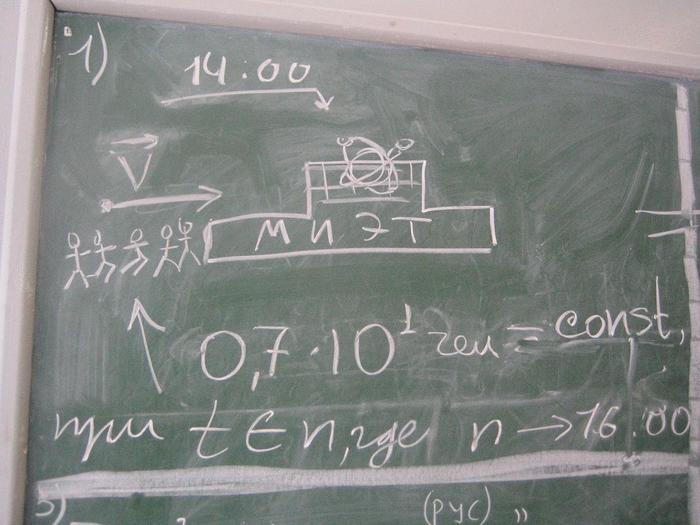 1) 14:00
V
МИЭТ
0,7·10¹ чел = const,
при t ∈ n, где n → 16:00
(рус) "